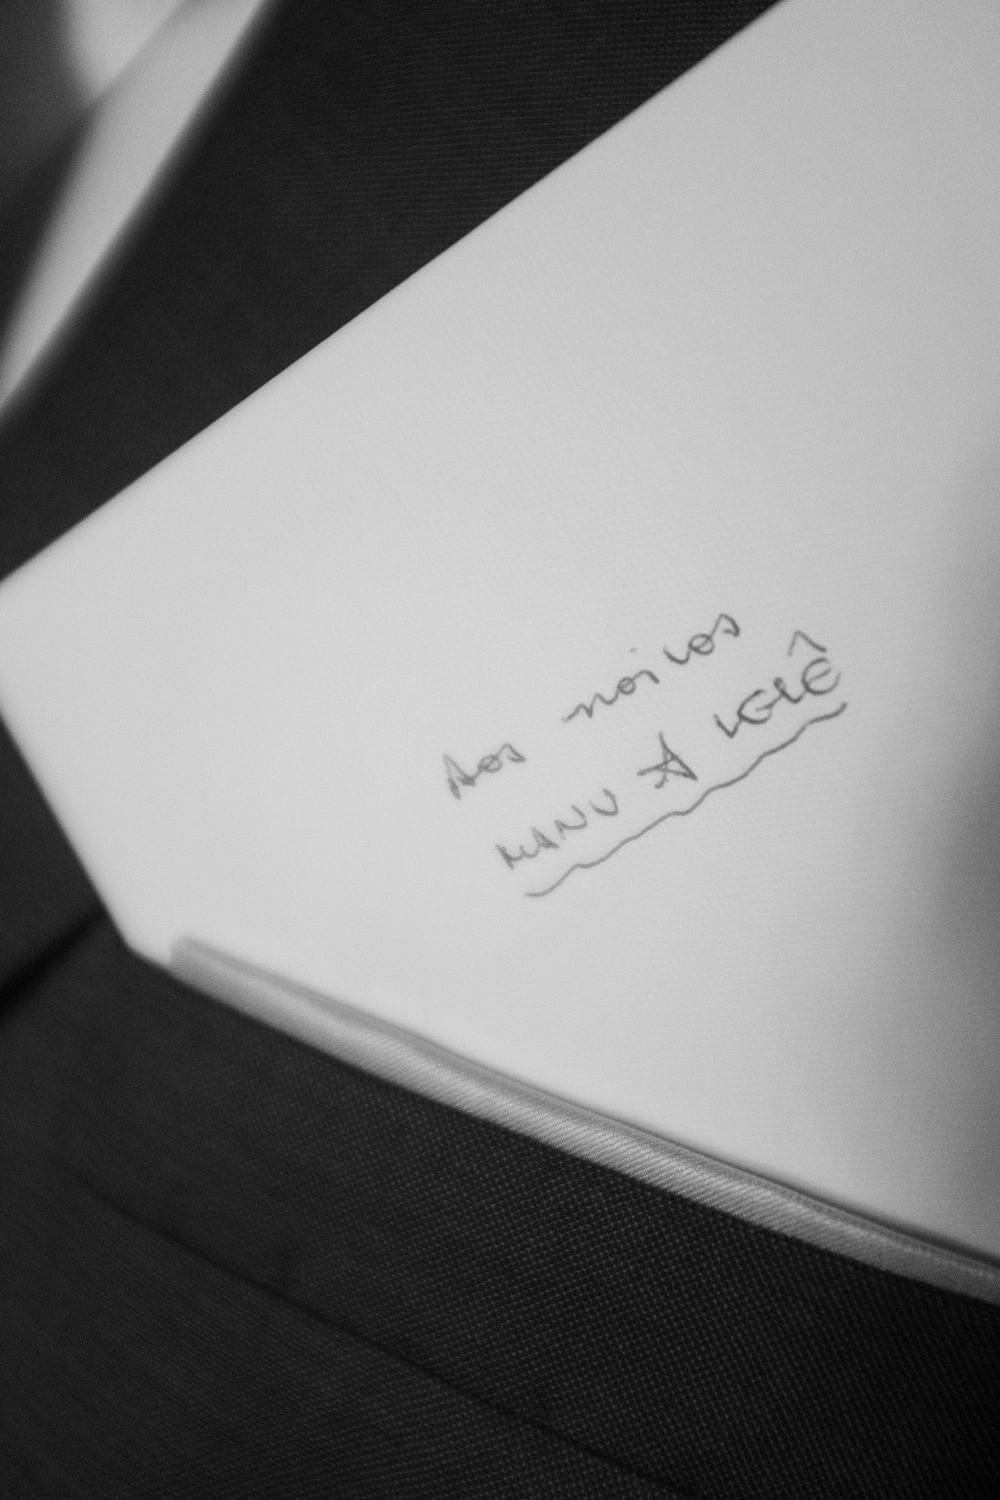 Aos noivos
MANU & LELÊ